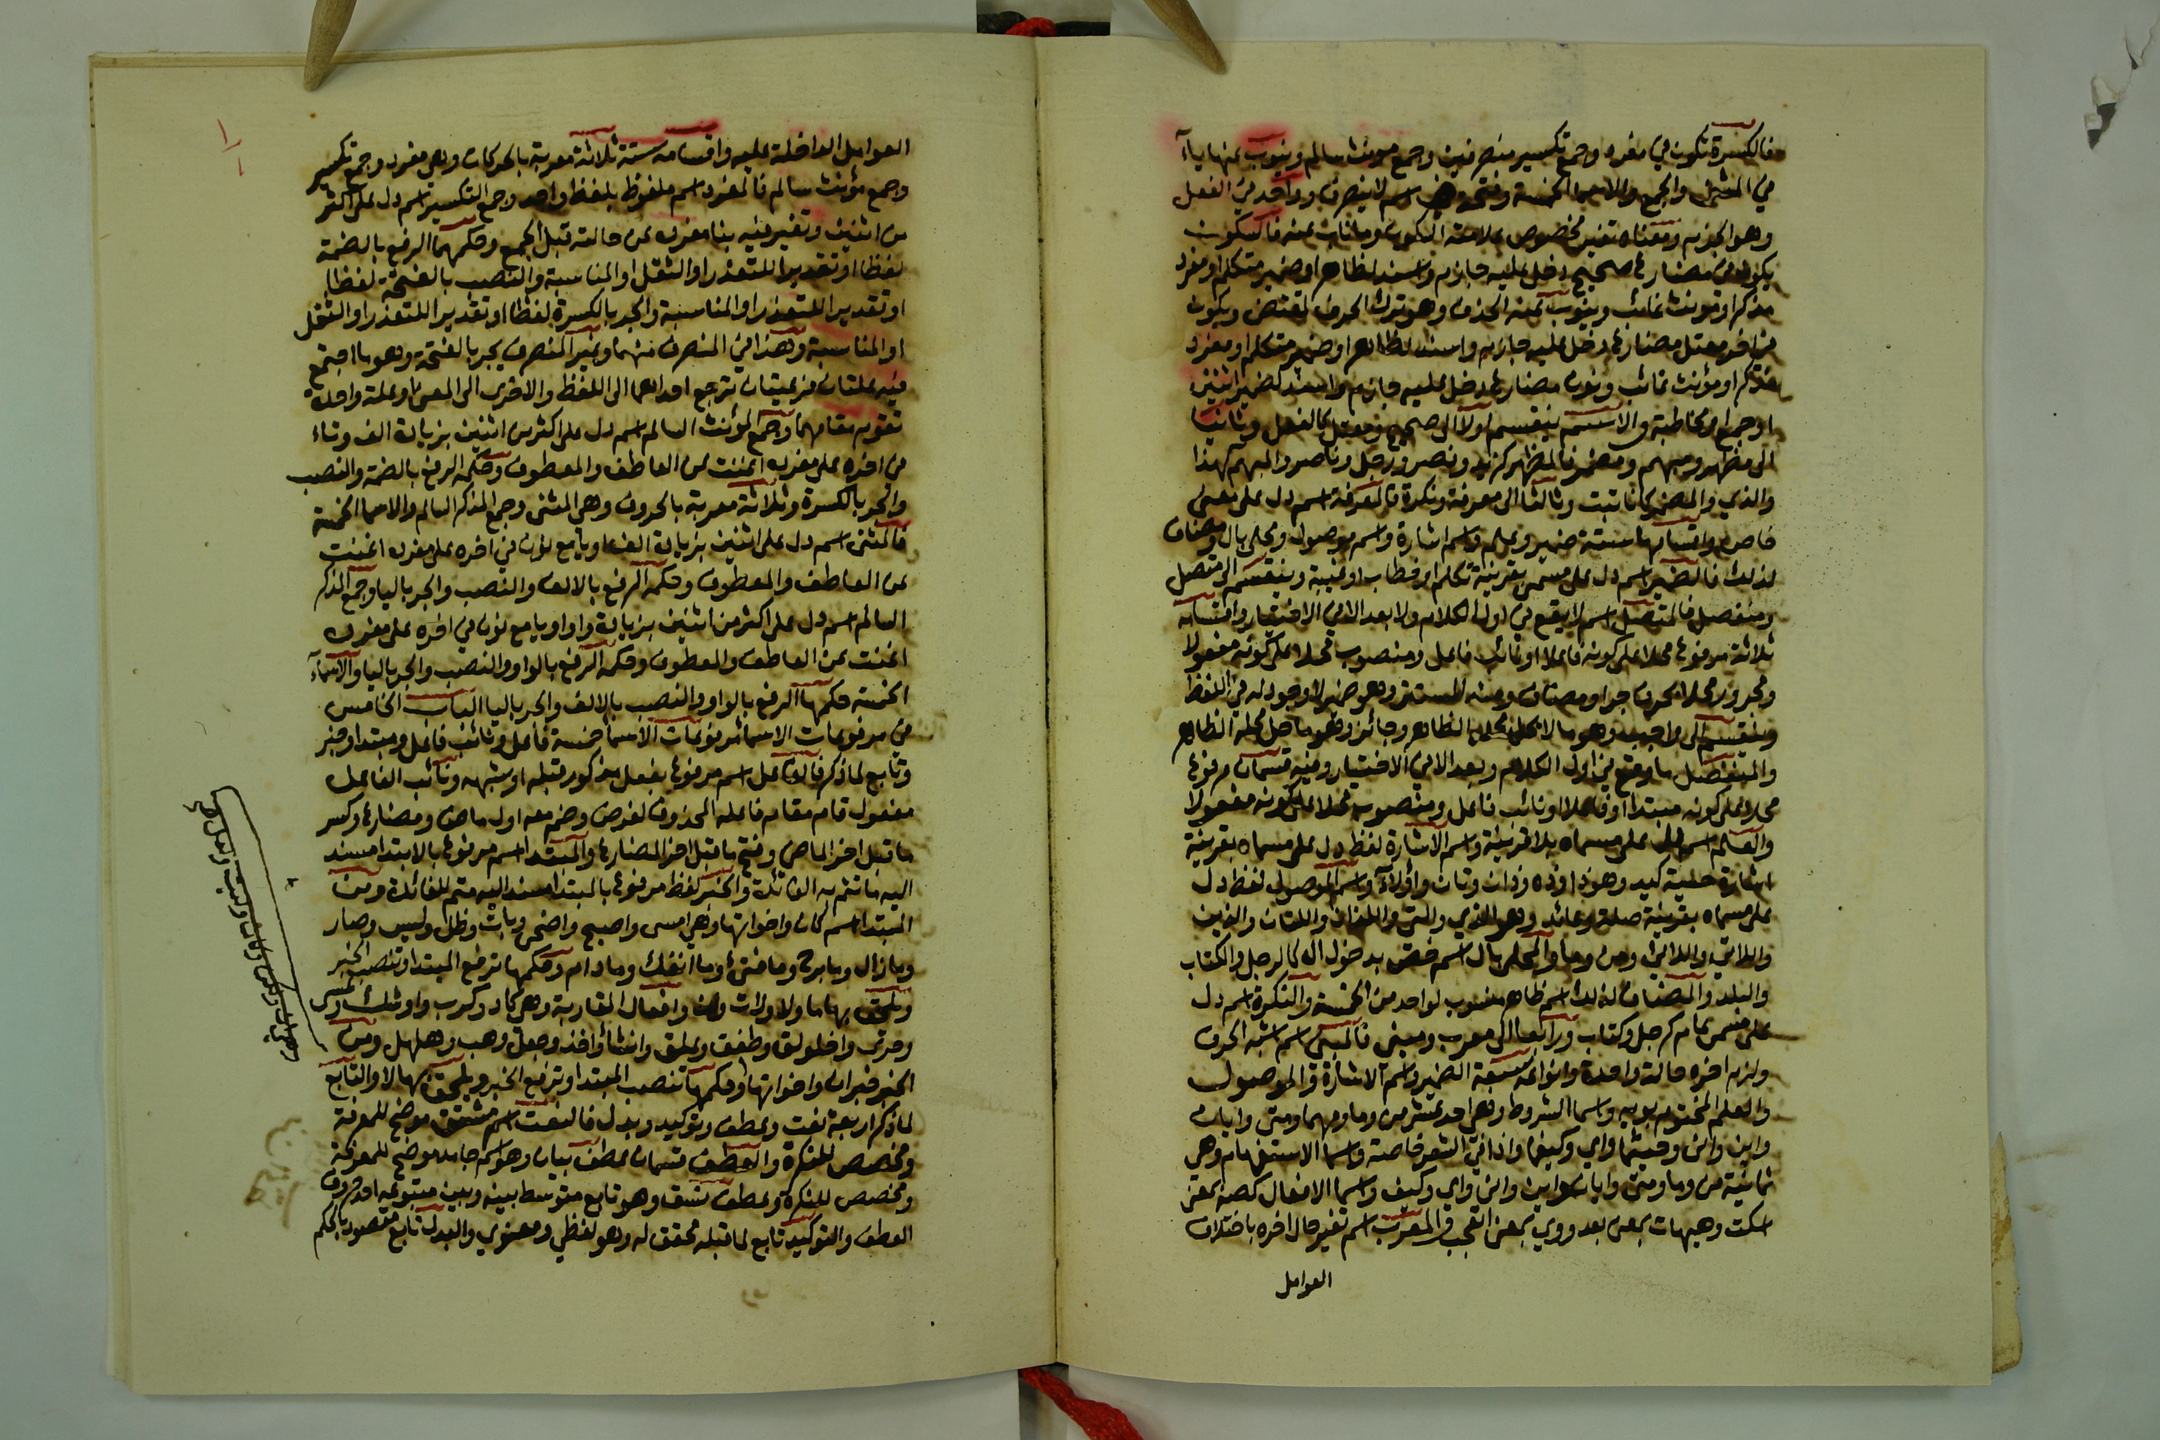 فالكسرة تكون في مفرد وجمع تكسير منصرفين وجمع مؤنث سالم وينوب عنها ياء
في المثنى والجمع والاسما الخمسة وفتحة في اسم لا ينصرف وواحد في الفعل
وهو الجزم ومعناه تغير مخصوص علامته السكون وما ناب عنه فالسكون
يكون في مضارع صحيح دخل عليه جازم واسند لظاهر او ضمير متكلم او مفرد
مذكر او مؤنث غائب وينوب عنه الحذف وهو ترك الحرف لمقتض ويكون
في اخر معتل مضارع دخل عليه جازم واسند لظاهر او ضمير متكلم او مفرد
مذكر او مؤنث غائب ونون مضارع دخل عليه جازم واسند لضمير اثنين
او جمع او مخاطبة والاسم ينقسم اولا الى صحيح ومعتل كالفعل وثانيا
الى مظهر ومبهم ومضمر فالمظهر كزيد ونصر ورجل وناصر والمبهم كهذا
والذي والمضمر كانا نبت وثالثا الى معرفة ونكرة فالمعرفة اسم دل على معين
خاص واقسامها ستة ضمير وعلم واسم اشارة واسم موصول ومحلى بال ومضاف
لذلك فالضمير اسم دل على مسمى بقرينة تكلم او خطاب او غيبة وينقسم الى متصل
ومنفصل فالمتصل اسم لا يقع في اول الكلام ولا بعد الا في الاختيار واقسامه
ثلاثة مرفوع محلا على كونه فاعلا او نائب فاعل ومنصوب محلا على كونه مفعولا
ومجرور محلا بحرف جر او مضاف ومنه المستتر وهو ضمير لا وجود له في اللفظ
وينقسم الى واجب وهو ما لا يحل محله الظاهر وجائز وهو ما حل محله الظاهر
والمنفصل ما وقع في اول الكلام وبعد الا في الاختيار وفيه قسمان مرفوع
محلا على كونه مبتدا او فاعلا او نائب فاعل ومنصوب محلا على كونه مفعولا
والعلم اسم على مسماه بلا قرينة واسم الاشارة لفظ دل على مسماه بقرينة
اشارة حسية كيد وهو ذا وذه وذان وتان واولاء واسم الموصول لفظ دل
على مسماه بقرينة صلة وعائد وهو الذي والتي واللذان واللتان والذين
واللاتي واللائي ومن وما والمحلى بال اسم خص بدخول ال كالرجل والكتاب
والبلد والمضاف لذلك اسم ظاهر منسوب لواحد من الخمسة والنكرة اسم دل
على مسمى عام كرجل وكتاب ورابعا الى معرب ومبني فالمبني اسم اشبه الحرف
ولزم اخره حالة واحدة وانواعه سبعة الضمير واسم الاشارة والموصول
والعلم المختوم بويه واسما الشروط وهي احد عشر من وما ومهما ومتى وايان
واين وانى وحيثما واي وكيفما واذا في الشعر خاصة واسما الاستفهام وهي
ثمانية من وما ومتى وايان واين وانى واي وكيف واسما الافعال كصه بمعنى
اسكت وهيهات بمعنى بعد ووي بمعنى اتعجب والمعرب اسم تغير حال اخره باختلاف
العوامل
العوامل الداخلة عليه واقسامه ستة ثلاثة معربة بالحركات وهي مفرد وجمع تكسير
وجمع مؤنث سالم فالمفرد اسم ملفوظ بلفظ واحد وجمع التكسير اسم دل على اكثر
من اثنين وتغير فيه بنا مفرده عن حالته قبل الجمع وحكمهما الرفع بالضمة
لفظا او تقديرا للتعذر او الثقل او المناسبة والنصب بالفتحة لفظا
او تقديرا للتعذر او المناسبة والجر بالكسرة لفظا او تقديرا للتعذر او الثقل
او المناسبة وهذا في المنصرف منهما وغير المنصرف يجر بالفتحة وهو ما اجتمع
فيه علتان فرعيتان ترجع احداهما الى اللفظ والاخرى الى المعنى او علة واحدة
تقوم مقامهما وجمع المؤنث السالم اسم دل على اكثر من اثنين بزيادة الف وتاء
في اخره على مفرده اغنت عن العاطف والمعطوف وحكمه الرفع بالضمة والنصب
والجر بالكسرة وثلاثة معربة بالحروف وهي المثنى وجمع المذكر السالم والاسما الخمسة
فالمثنى اسم دل على اثنين بزيادة الف او يا مع نون في اخره على مفرده اغنت
عن العاطف والمعطوف وحكمه الرفع بالالف والنصب والجر باليا وجمع المذكر
السالم اسم دل على اكثر من اثنين بزيادة واو او يا مع نون في اخره على مفرده
اغنت عن العاطف والمعطوف وحكمه الرفع بالواو والنصب والجر باليا والاسماء
الخمسة حكمها الرفع بالواو والنصب بالالف والجر باليا الباب الخامس
في مرفوعات الاسما مرفوعات الاسما خمسة فاعل ونائب فاعل ومبتدا وخبر
وتابع لما ذكر فالفاعل اسم مرفوع بفعل مذكور قبله او شبهه ونائب الفاعل
مفعول قام مقام فاعله المحذوف لغرض وضم معه اول ماض ومضارع وكسر
ما قبل اخر الماضي وفتح ما قبل اخر المضارع والمبتدا اسم مرفوع بالابتدا مسند
اليه ما تتم به الفائدة والخبر لفظ مرفوع بالمبتدا مسند اليه متم للفائدة ومن
المبتدا اسم كان واخواتها وهي امسى واصبح واضحى وبات وظل وليس وصار
وما زال وما برح وما فتئ وما انفك وما دام وحكمها ترفع المبتدا وتنصب الخبر
ويلحق بها ما ولا ولات وان وافعال المقاربة وهي كاد وكرب واوشك وعسى
وحرى واخلولق وطفق وعلق وانشأ واخذ وجعل وهب وهلهل ومن
الخبر خبر ان واخواتها وحكمها تنصب المبتدا وترفع الخبر ويلحق بها لا والتابع
لما ذكر اربعة نعت وعطف وتوكيد وبدل فالنعت اسم مشتق موضح للمعرفة
ومخصص للنكرة والعطف قسمان عطف بيان وهو اسم جامد موضح للمعرفة
ومخصص للنكرة وعطف نسق وهو تابع متوسط بينه وبين متبوعه احد حروف
العطف والتوكيد تابع لما قبله محقق له وهو لفظي ومعنوي والبدل تابع مقصود بالحكم
وهي ان ولكن وكان وليت ولعل